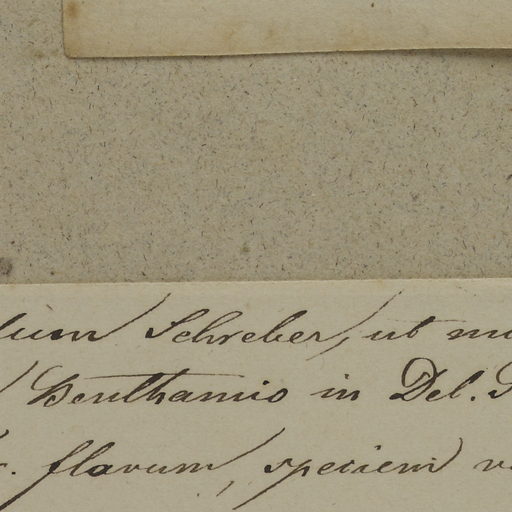 lum Schreber, ut
Benthamio in Del.
flavum, speciem